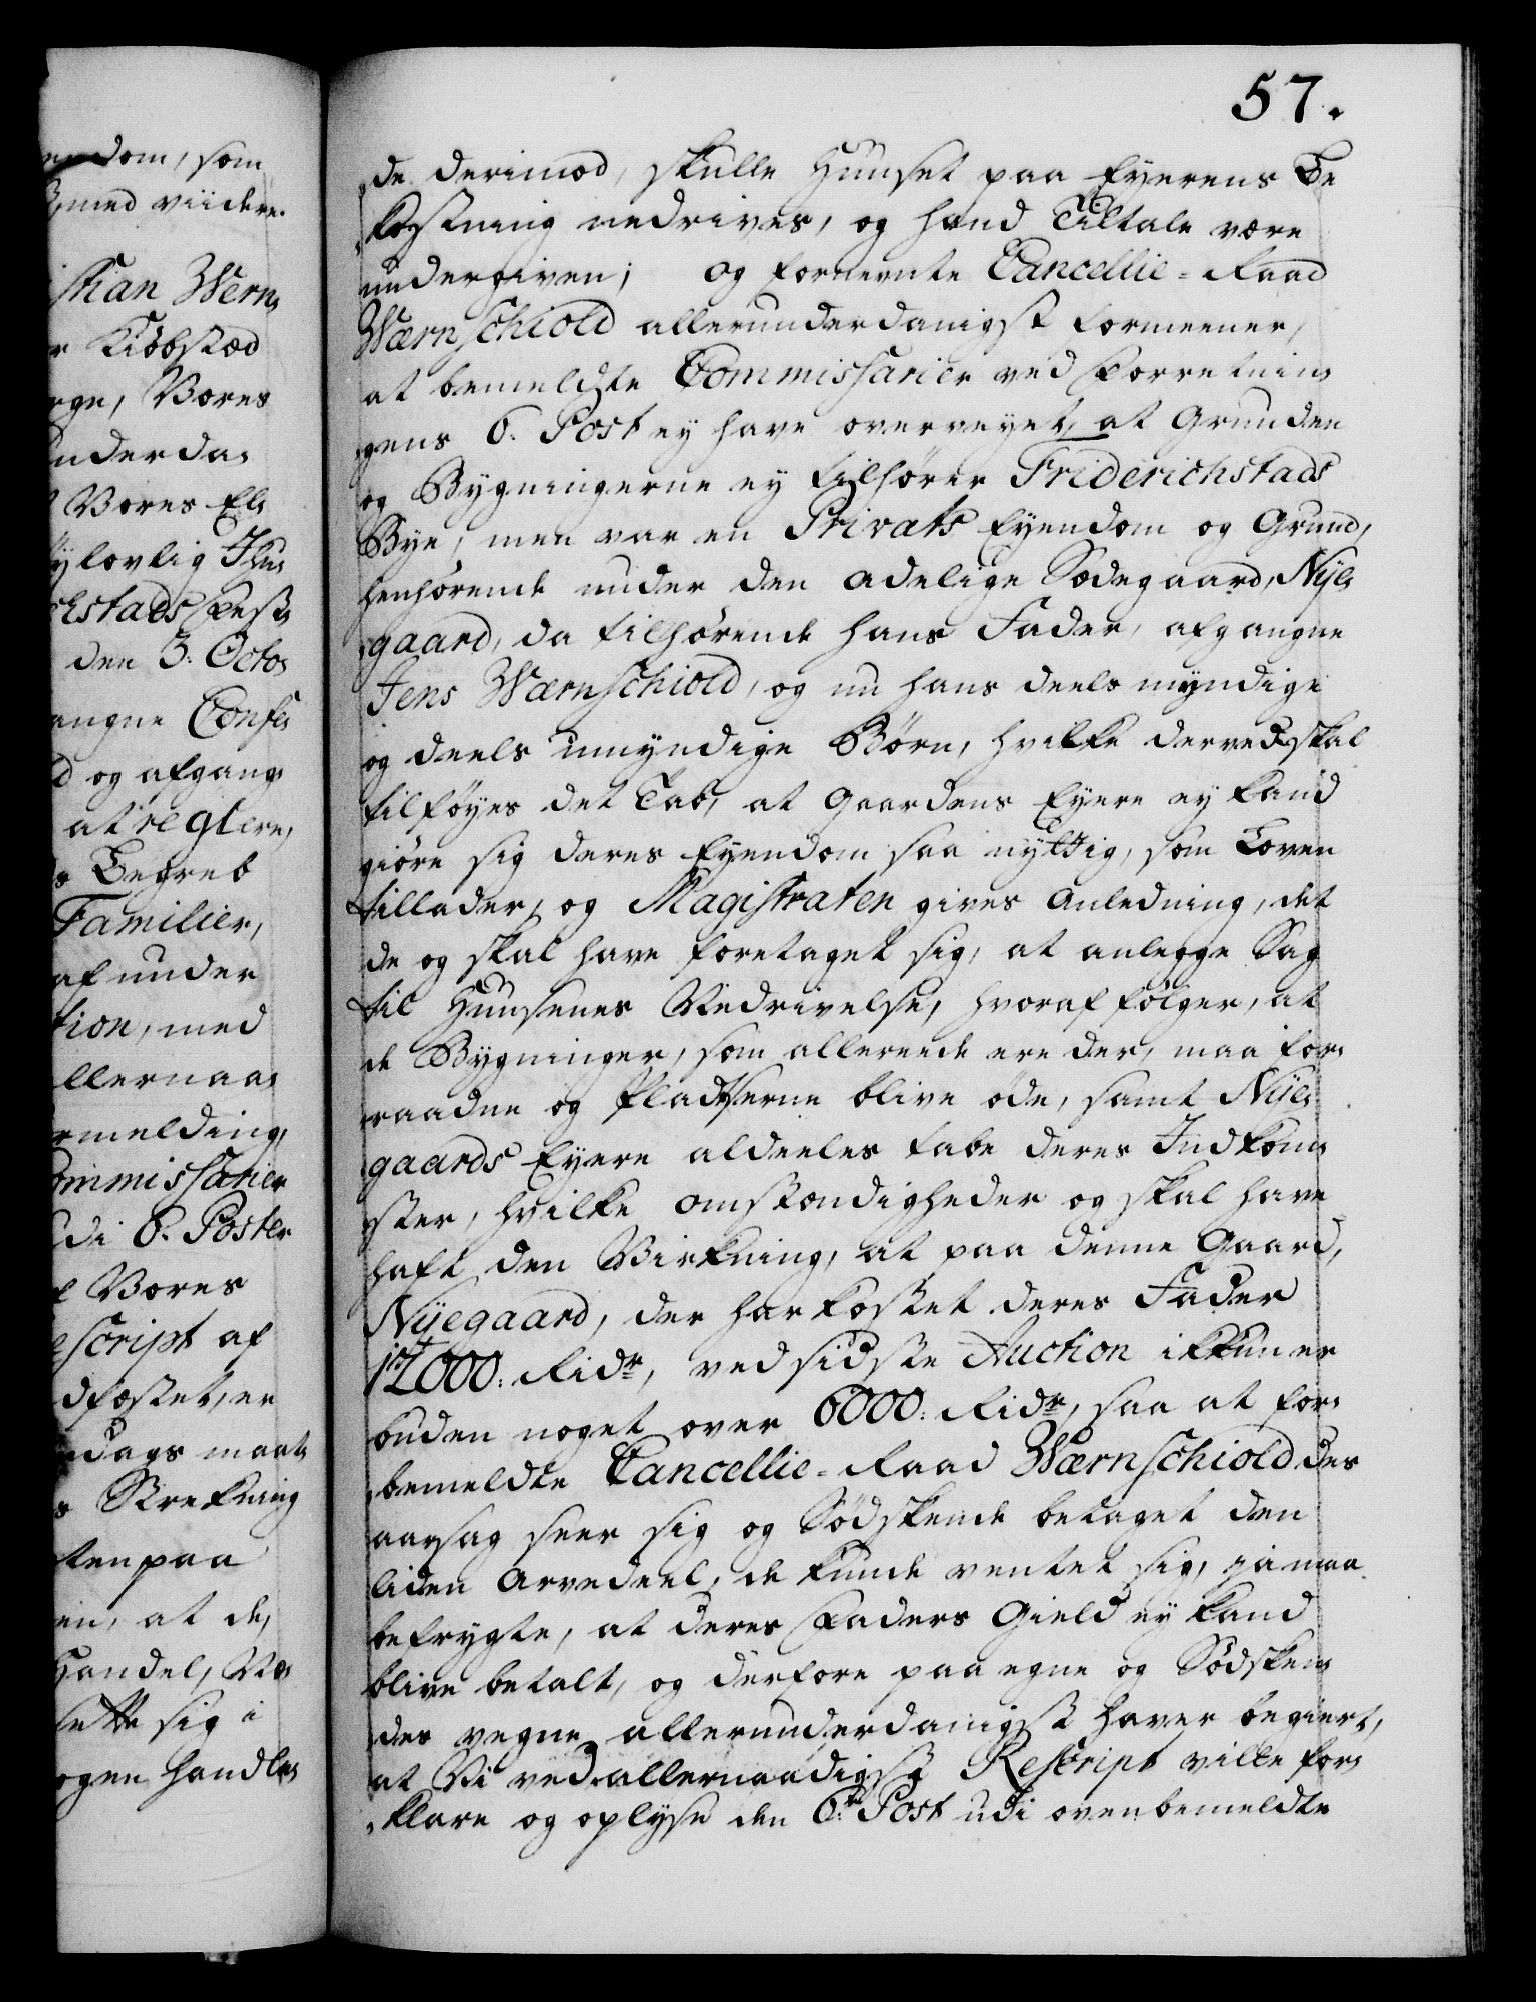 57.
endom, som
med viidere.
istian Wern-
r Kiöbstæd
rge, Vores
nderda-
Vores El-
ylovlig Thu-
chstads Fest-
den 3. Octo-
angne Confe-
d og afgang-
at reglere,
s Begreb
Familier,
af under
tion, med
llernaa-
rmelding,
ommissarier
udi 6. Poster
l Vores
escript af
dfæstet, er
dags maat-
s Strekning
ten paa
en, at de,
Handel, Næ-
sette sig i
ogen handle-
de derimod, skulle Huuset paa Eyerens Be
kostning nedrives, og hand Tiltale være
undergiven; og fornevnte Cancellie-Raad
Wærnschiold allerunderdanigst formeener,
at bemeldte Commissarier ved Forretnin-
gens 6. Post ey have overveyet, at Grunden
og Bygningerne ey tilhörer Friderichstads
Bye, men var en Privats Eyendom og Grund,
henhörende under den adelige Sædegaard, Nÿe-
gaard, da tilhörende hans Fader, afgangne
Jens Wærnschiold, og nu hans deels myndige
og deels umyndige Börn, hvilke derved skal
tilföyes det Tab, at Gaardens Eyere ey kand
giöre sig deres Eyendom saa nyttig, som Loven
tillader, og Magistraten gives Anledning, det
de og skal have foretaget sig, at anlegge Sag
til Huusenes Nedrivelse, hvoraf fölger, at
de Bygninger, som allereede ere der, maa for-
raadne og Pladserne blive öde, samt Nÿe-
gaards Eyere aldeeles tabe deres Indkom-
ster, hvilke Omstændigheder og skal have
haft den Virkning, at paa denne Gaard,
Nÿegaard, der har kostet deres Fader
12000: Rdr, ved sidste Auction ikkun er
buden noget over 6000: Rdr, saa at for-
bemeldte Cancellie-Raad Wærnschiold des
aarsag seer sig og Södskende betaget den
liden Arvedeel, de kunde ventet sig, ja maa
befrygte, at deres Faders Gield ey kand
blive betalt, og derfore paa egne og Södsken-
des vegne allerunderdanigst haver begiert,
at Vi ved allernaadigst Rescript ville for-
klare og oplyse den 6te Post udi ovenbemeldte